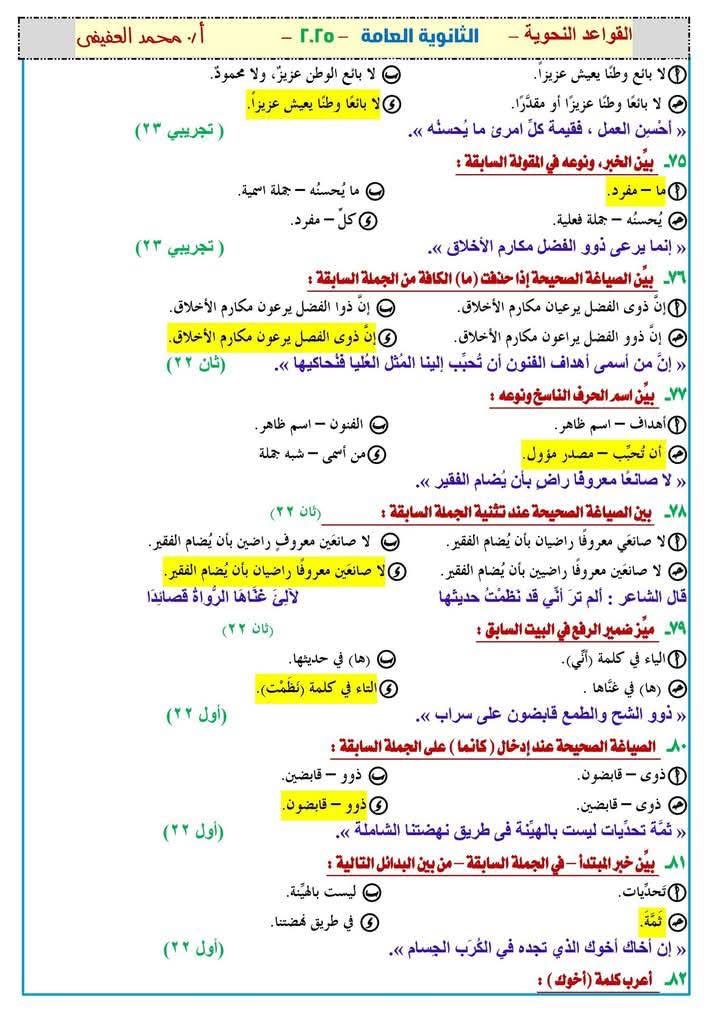 القواعد النحوية – الثانوية العامة – ٢٠٢٥ – أ/ محمد العفيفى
أ لا بائع وطنًا يعيش عزيزاً. ب لا بائع الوطن عزيزٌ، ولا محمودٌ.
جـ لا بائعًا وطنًا عزيزًا أو مقدَّرًا. د لا بائعًا وطنًا يعيش عزيزاً.
« أحْسِن العمل ، فقيمة كلِّ امرئ ما يُحسنُه ». ( تجريبي ٢٣)
٧٥ـ بيِّن الخبر، ونوعه في المقولة السابقة :
أ ما – مفرد. ب ما يُحسنُه – جملة اسمية.
جـ يُحسنُه – جملة فعلية. د كلّ – مفرد.
« إنما يرعى ذوو الفضل مكارم الأخلاق ». ( تجريبي ٢٣)
٧٦ـ بيِّن الصياغة الصحيحة إذا حذفت (ما) الكافة من الجملة السابقة :
أ إنَّ ذوى الفضل يرعيان مكارم الأخلاق. ب إنَّ ذوا الفضل يرعون مكارم الأخلاق.
جـ إنَّ ذوو الفضل يراعون مكارم الأخلاق. د إنَّ ذوى الفصل يرعون مكارم الأخلاق.
« إنَّ من أسمى أهداف الفنون أن تُحبِّب إلينا المُثل العُليا فنُحاكيها ». (ثان ٢٢)
٧٧ـ بيِّن اسم الحرف الناسخ ونوعه :
أ أهداف – اسم ظاهر. ب الفنون – اسم ظاهر.
جـ أن تُحبِّب – مصدر مؤول. د من أسمى – شبه جملة
« لا صانعًا معروفا راضٍ بأن يُضام الفقير ».
٧٨ـ بين الصياغة الصحيحة عند تثنية الجملة السابقة : (ثان ٢٢)
أ لا صانعَي معروفا راضيان بأن يُضام الفقير. ب لا صانعَين معروفٍ راضين بأن يُضام الفقير.
جـ لا صانعَين معروفًا راضيين بأن يُضام الفقير. د لا صانعَين معروفًا راضيان بأن يُضام الفقير.
قال الشاعر : ألم ترَ أنّي قد نَظمْتُ حديثها لآلِئَ غنَّاهَا الرُّواةُ قصائِدَا
٧٩ـ ميِّز ضمير الرفع في البيت السابق : (ثان ٢٢)
أ الياء في كلمة (أنّي). ب (ها) في حديثها.
جـ (ها) في غنَّاها . د التاء في كلمة (نَظَمْت).
« ذوو الشح والطمع قابضون على سراب ». (أول ٢٢)
٨٠ـ الصياغة الصحيحة عند إدخال ( كانما ) على الجملة السابقة :
أ ذوى – قابضون. ب ذوو – قابضين.
جـ ذوى – قابضين. د ذوو – قابضون.
« ثمَّة تحدِّيات ليست بالهيِّنة فى طريق نهضتنا الشاملة ». (أول ٢٢)
٨١ـ بيِّن خبر المبتدأ – في الجملة السابقة – من بين البدائل التالية :
أ تَحدِّيات. ب ليست بالهيِّنة.
جـ ثَمَّةَ. د في طريق نهضتنا.
« إن أخاك أخوك الذي تجده في الكُرَب الجسام ». (أول ٢٢)
٨٢ـ أعرب كلمة (أخوك) :